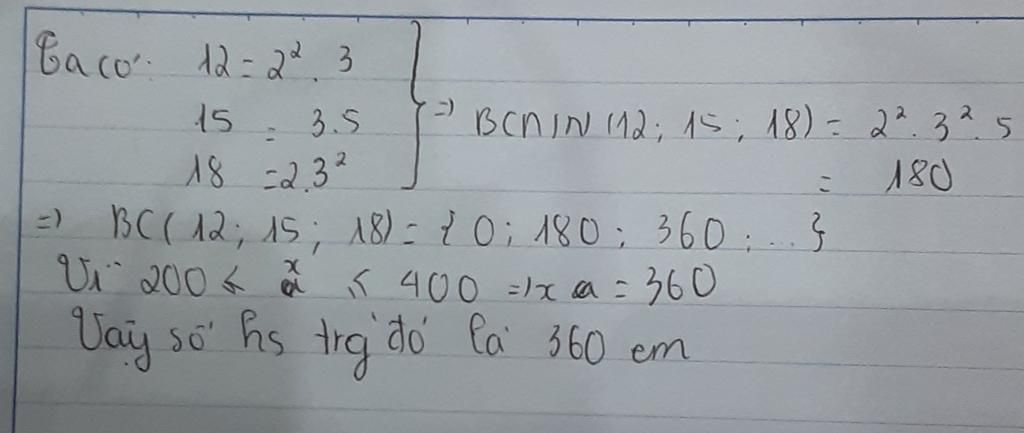 Ta có: 12 = 2². 3
15 = 3.5
18 = 2.3²
=> BCNN (12; 15; 18) = 2². 3². 5
= 180
=> BC( 12; 15; 18) = { 0; 180; 360; ... }
Vì 200 ≤ x ≤ 400 => x = 360
Vậy số hs trg đó là 360 em